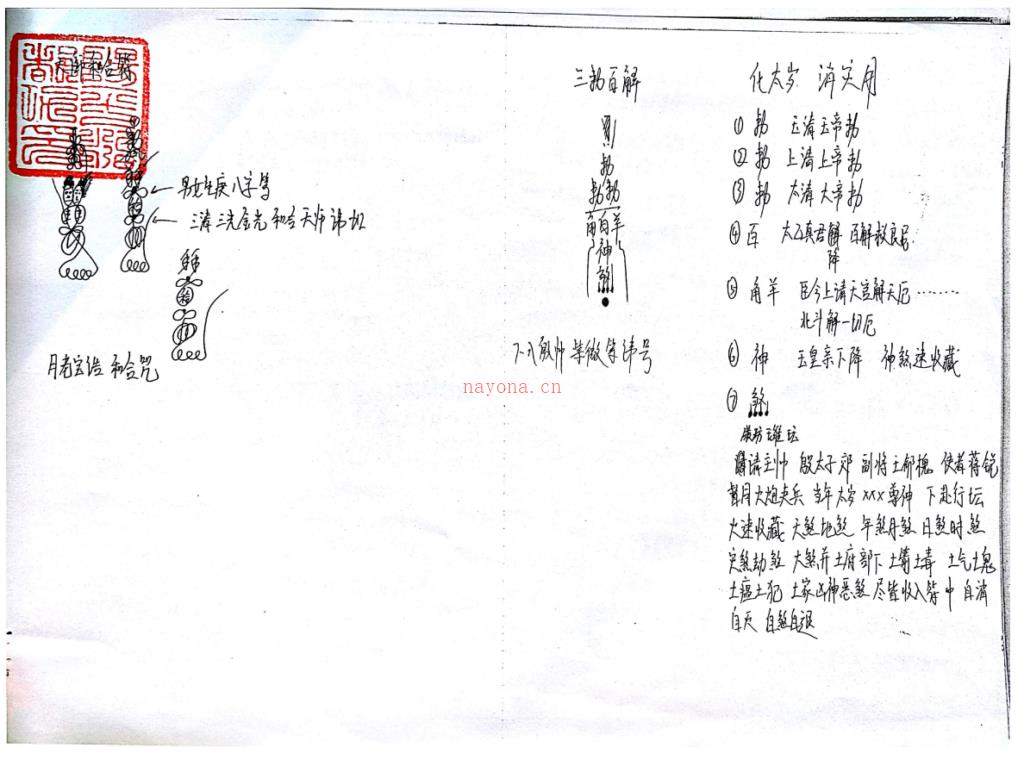 男女生庚八字等
三清三光金光和合天师讳切
月老宝诰 和合咒
三勅百解
勅
勅勅
角百羊
神
煞
nayona.cn
化太岁 消灾用
① 勅 玉清玉帝勅
② 勅 上清上帝勅
③ 勅 太清大帝勅
④ 百 太乙真君解 百解救良民
降
⑤ 角羊 臣今上请天宫解天厄………
北斗解一切厄
⑥ 神 玉皇亲下降 神煞速收藏
⑦ 煞
请主帅 殷太子郊 副将 使者蒋锐
当年太岁xxx尊神 下赴行坛
火速收藏 天煞地煞 年煞月煞 日煞时煞
灾煞劫煞 大煞并土府部下 土毒 土气土鬼
土瘟土犯 土家凶神恶煞 尽皆收入符中 自消
自灭 自煞自退